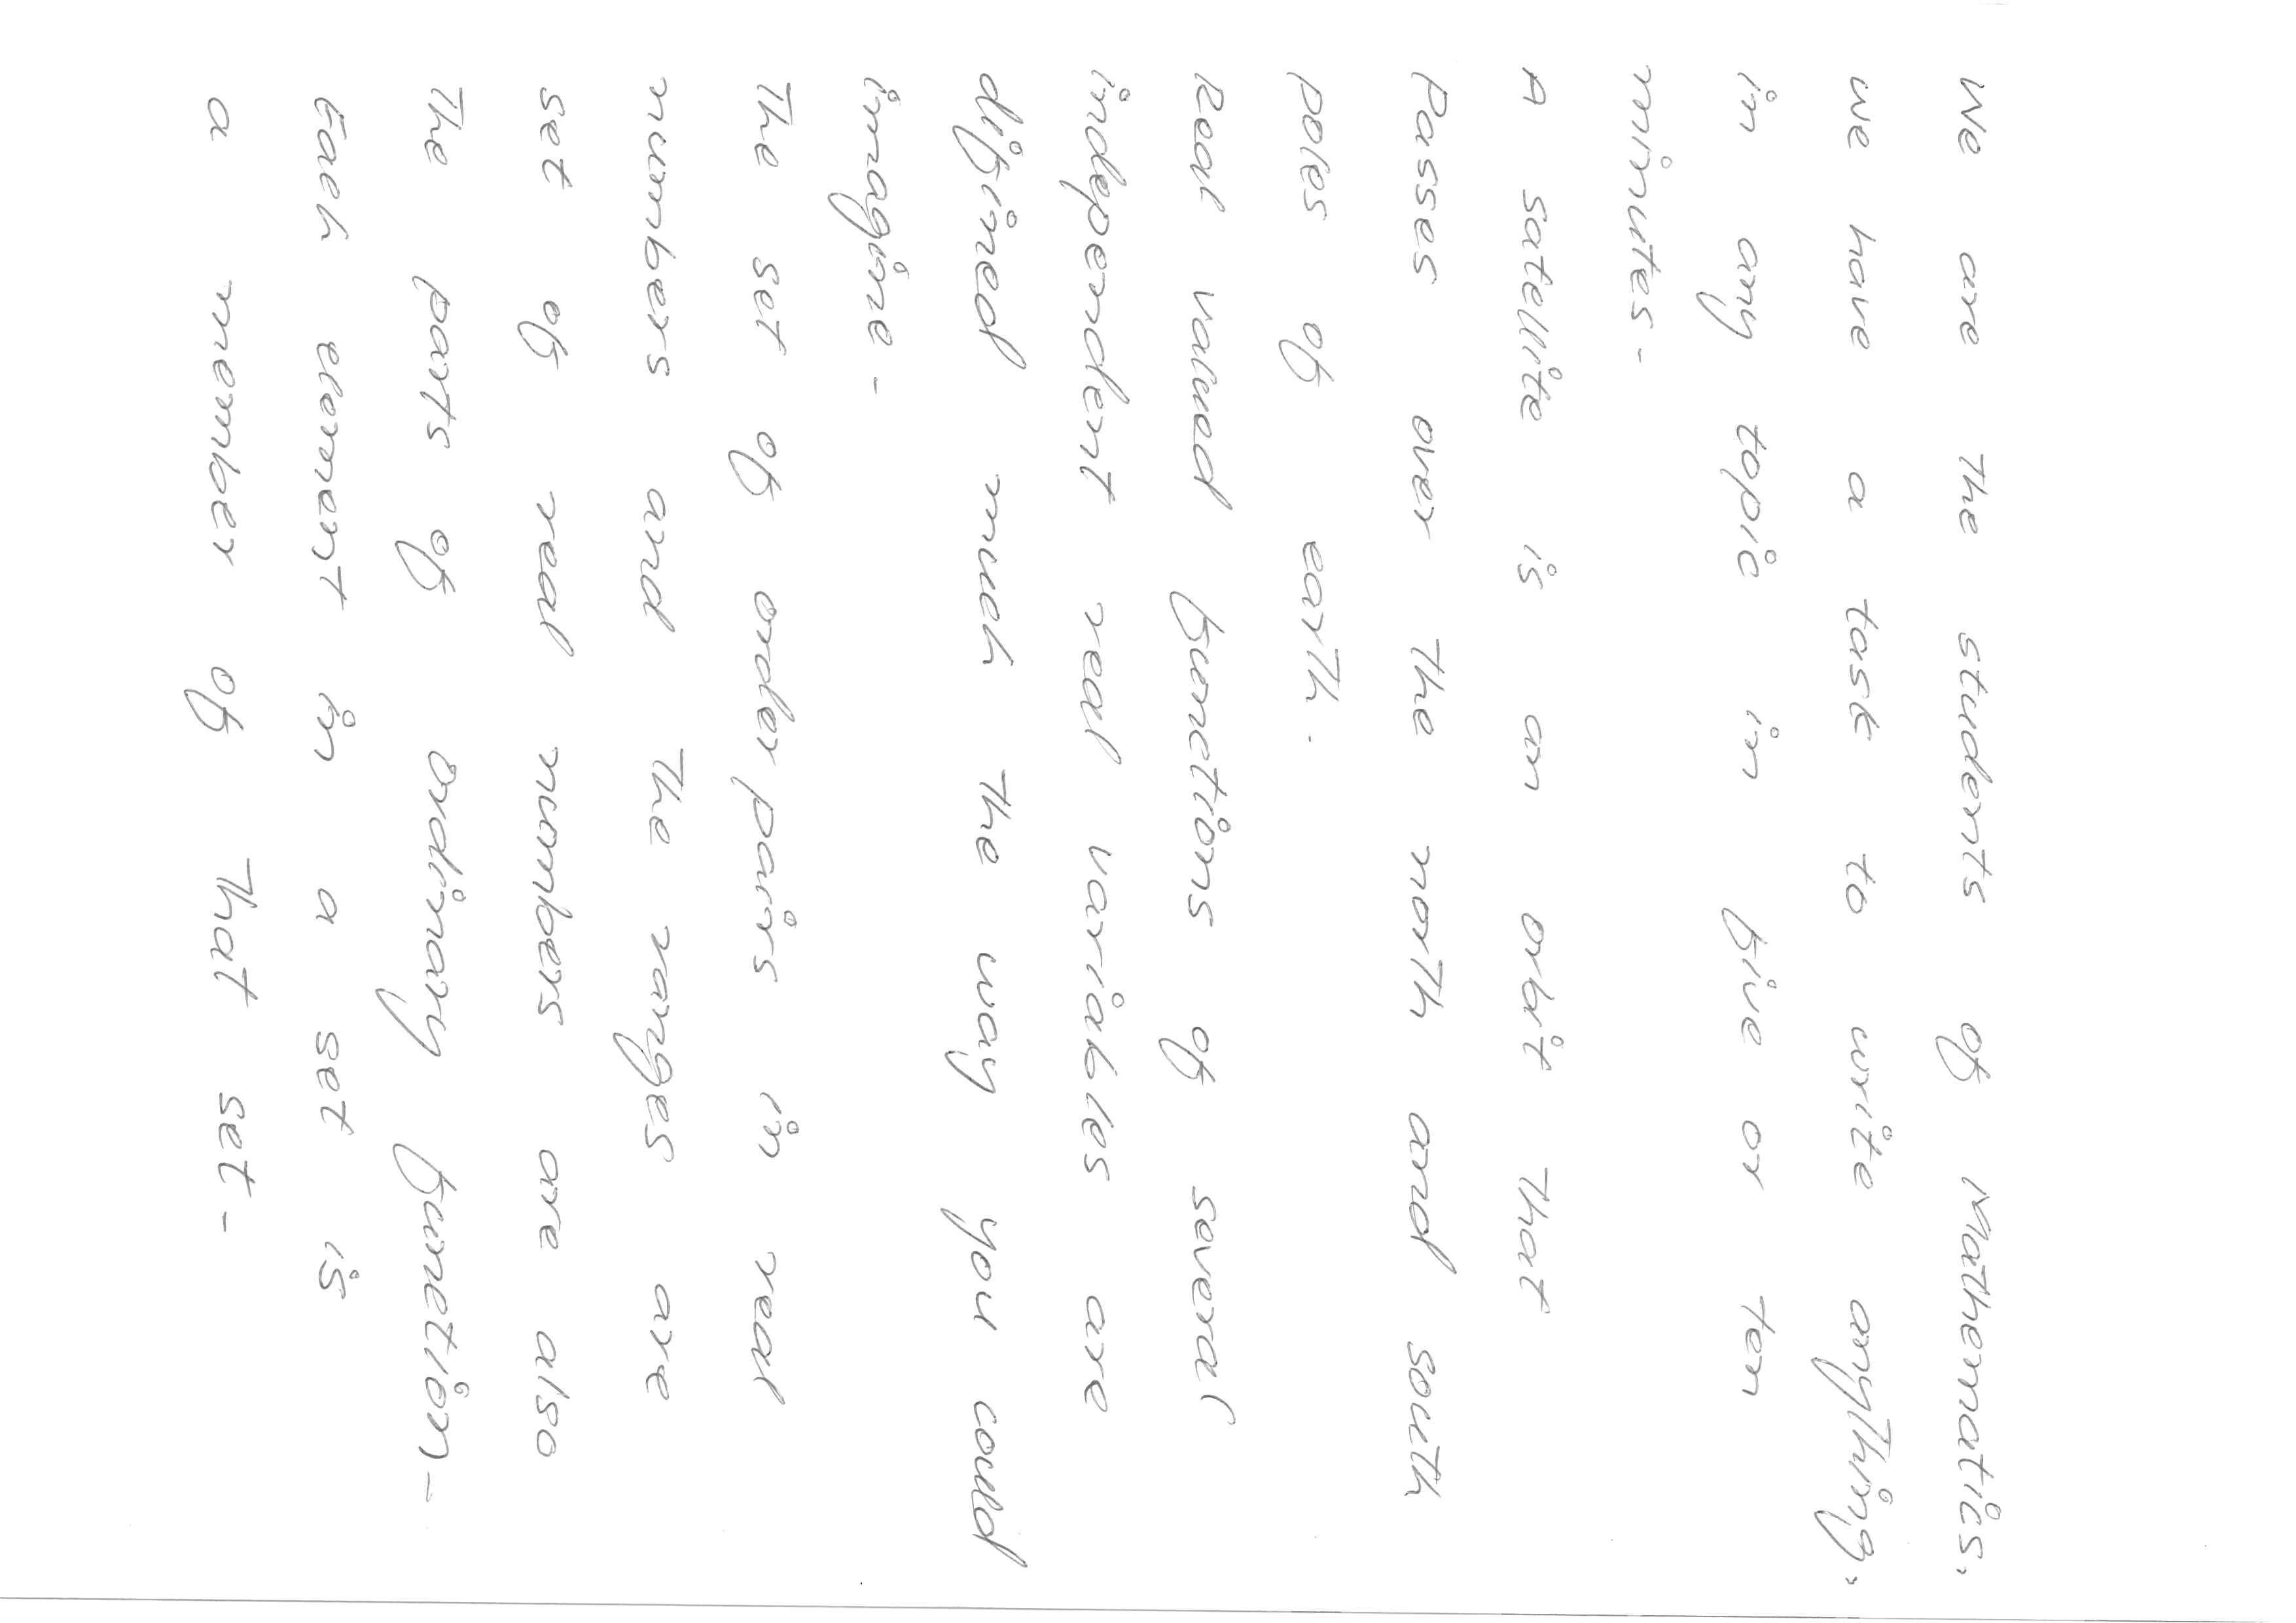 We are the students of Mathematics,
we have a task to write anything,
in any topic in five or ten
minutes -
A satellite is an orbit that
Passes over the north and south
poles of earth .
Real valued functions of several
independent real variables are
difined much the way you could
imagine -
The set of order pairs in real
numbers and the ranges are
set of real numbers are also
The parts of ordinary function -
Each element in a set is
a member of that set -